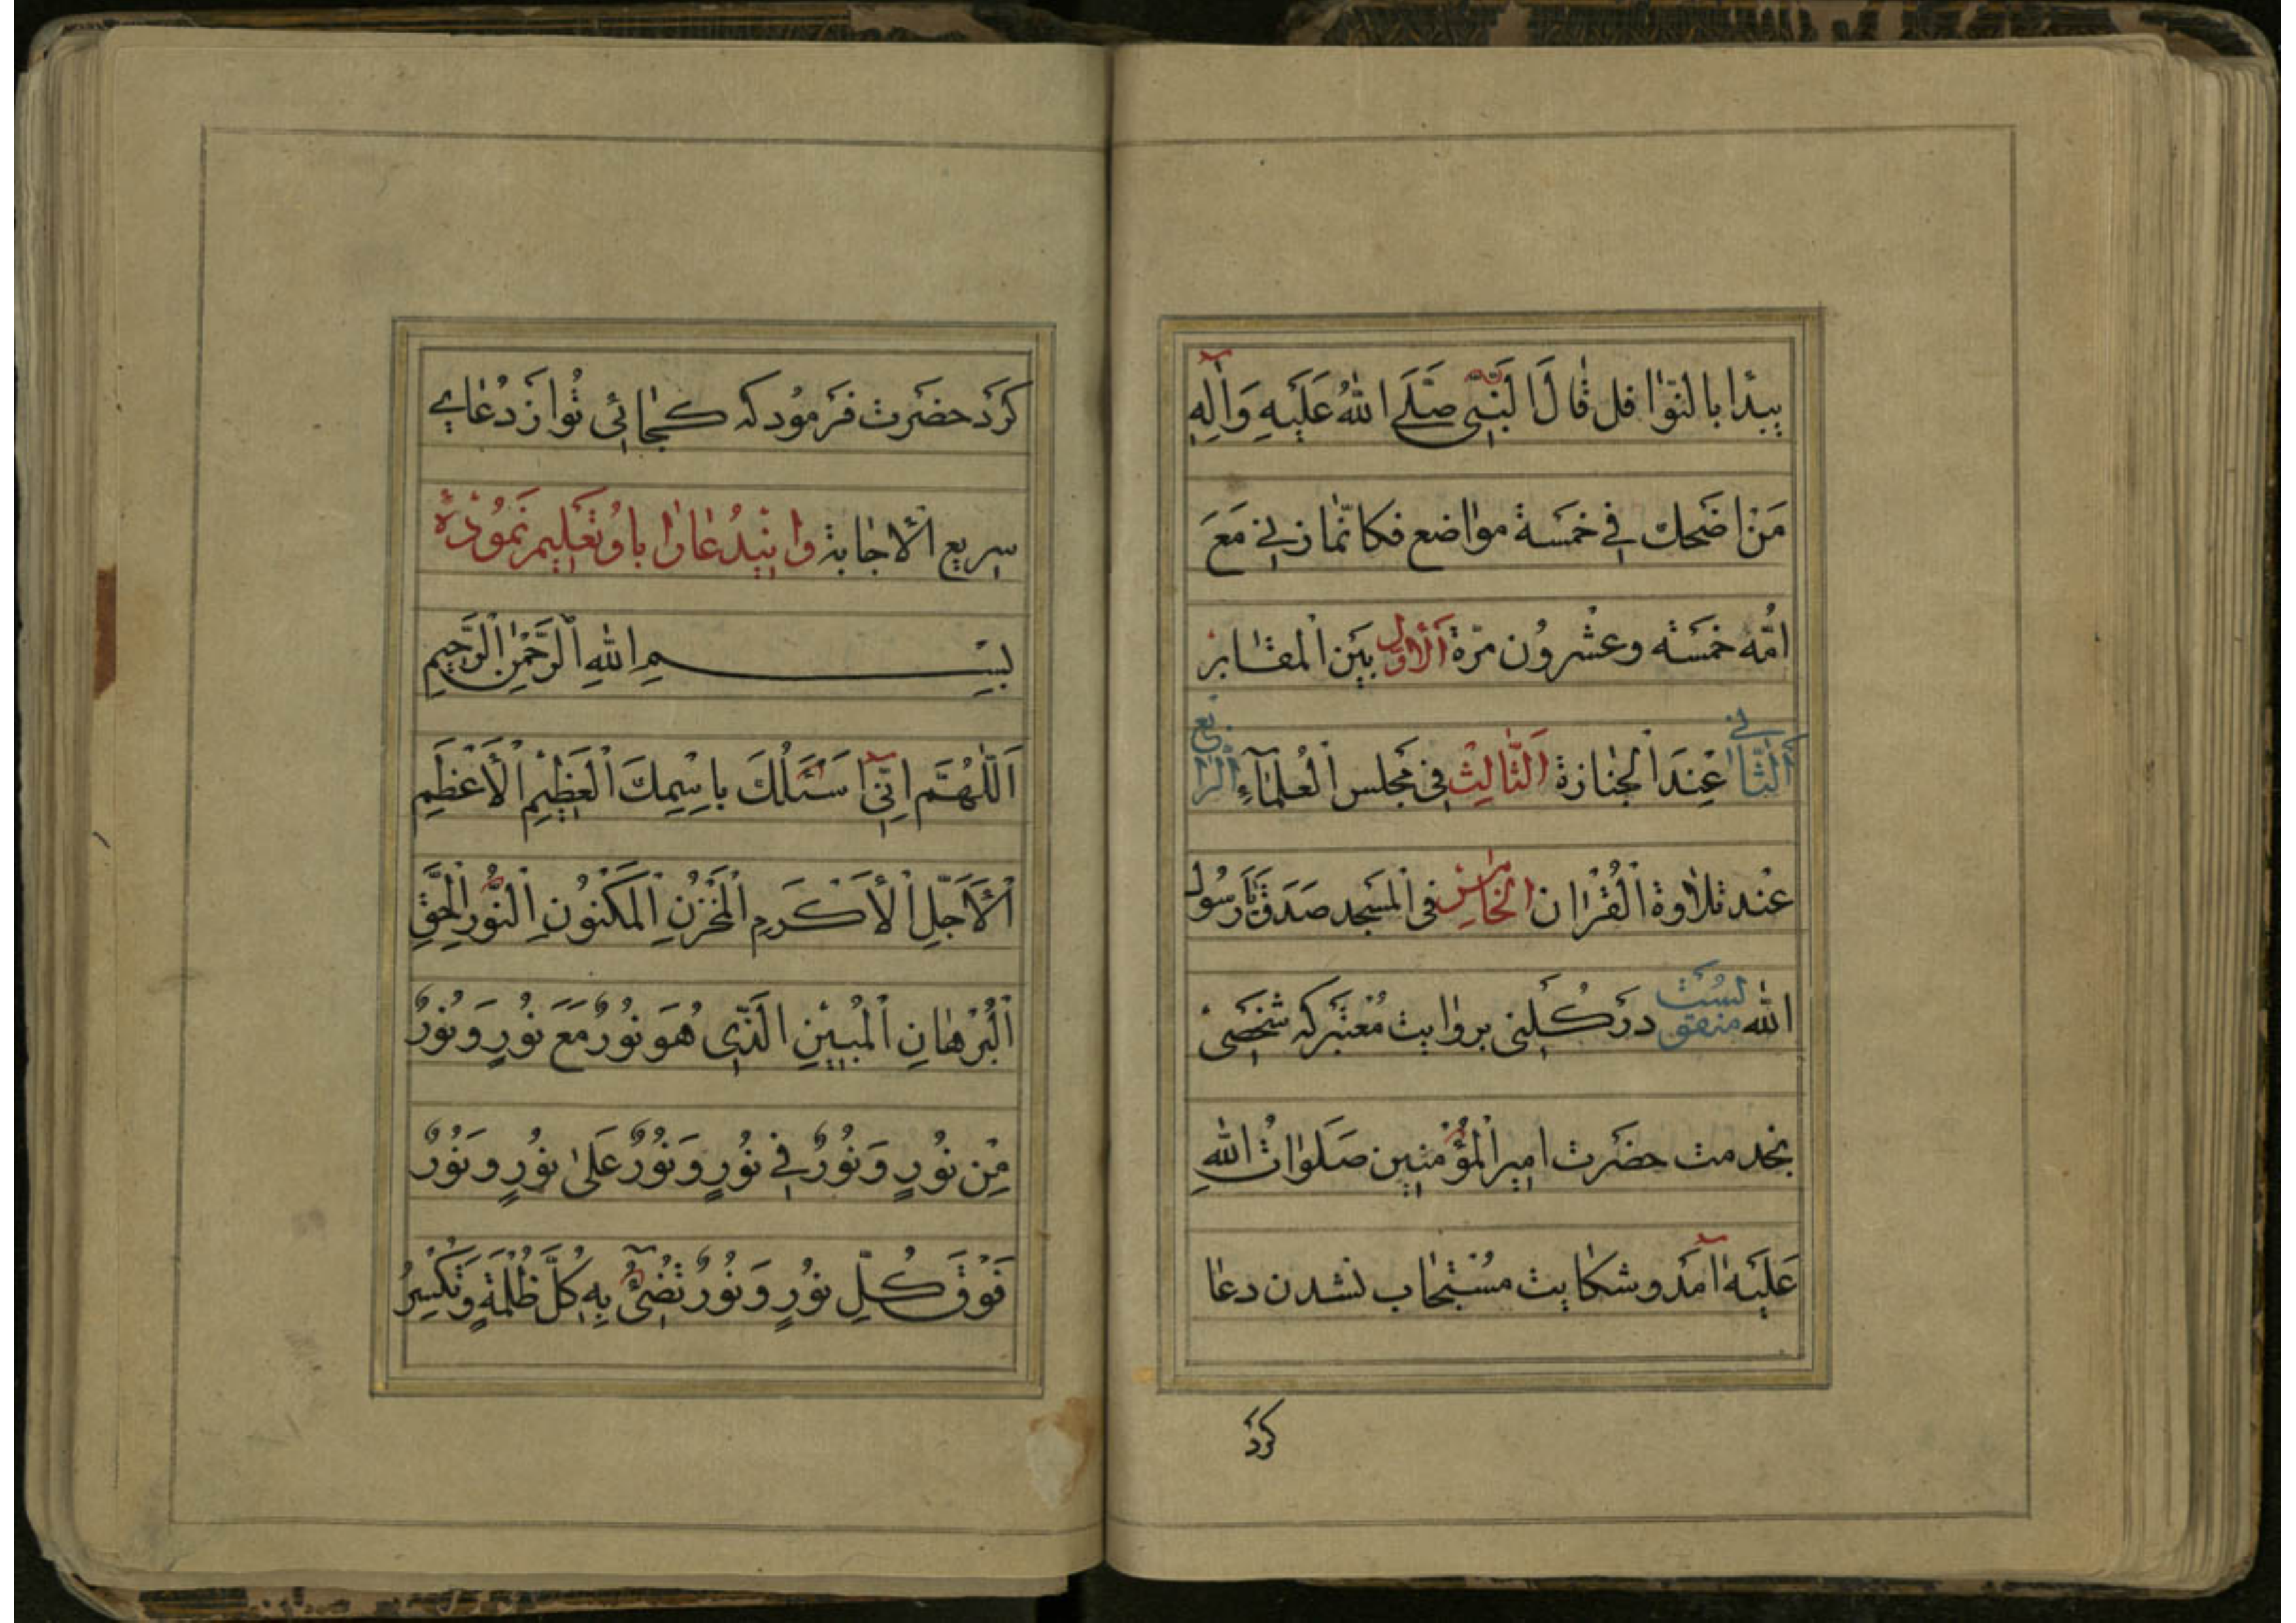 يبدا بالنوافل قال النبى صلى الله عليه وآله
من اضحك فى خمسة مواضع فكانما زنى مع
امه خمسته وعشرون مرة الاول بين المقابر
الثانى عند الجنازة الثالث فى مجلس العلمآء الرابع
عند تلاوة القران الخامس فى المسجد صدق يا رسول
الله در كلينى بروايت معتبر كه شخصى
بخدمت حضرت امير المؤمنين صلوات الله
عليه آمد و شكايت مستجاب نشدن دعا
كرد
كرد حضرت فرمود كه كجائى تو از دعاى
سريع الاجابة و ايندعا را باو تعليم نموده
بِسْمِ اللهِ الرَّحْمٰنِ الرَّحِيمِ
اَللّٰهُمَّ اِنّى اَسْئَلُكَ بِاسْمِكَ الْعَظِيْمِ الْاَعْظَمِ
اَلْاَجَلِّ الْاَكْرَمِ الْمَخْزُنِ الْمَكْنُونِ النُّورِ الْحَقِّ
اَلْبُرْهَانِ الْمُبِيْنِ الَّذِى هُوَ نُورٌ مَعَ نُورٍ وَ نُورٌ
مِنْ نُورٍ وَ نُورٌ فِى نُورٍ وَ نُورٌ عَلىٰ نُورٍ وَ نُورٌ
فَوْقَ كُلِّ نُورٍ وَ نُورٌ تُضِىٓءُ بِهِ كُلَّ ظُلْمَةٍ وَ تَكْسِرُ